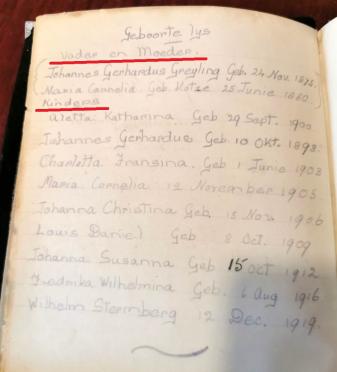 Geboorte lys
Vader en Moeder.
Johannes Gerhardus Greyling Geb. 24 Nov. 1875.
Maria Cornelia. Geb. Kotze 25 Junie 1880.
Kinders
Aletta Katharina Geb 29 Sept. 1900
Johannes Gerhardus Geb 10 Okt.
Charlotta Fransina. Geb 1 Junie 1903
Maria Cornelia 12 November 1905
Johanna Christina Geb. 15 Nov. 1906
Louis Daniel Geb 8 Oct. 1909
Johanna Susanna Geb 15 Oct 1912
Fredrika Wilhelmina Geb. 6 Aug 1916
Wilhelm Sternberg 12 Dec. 1919.